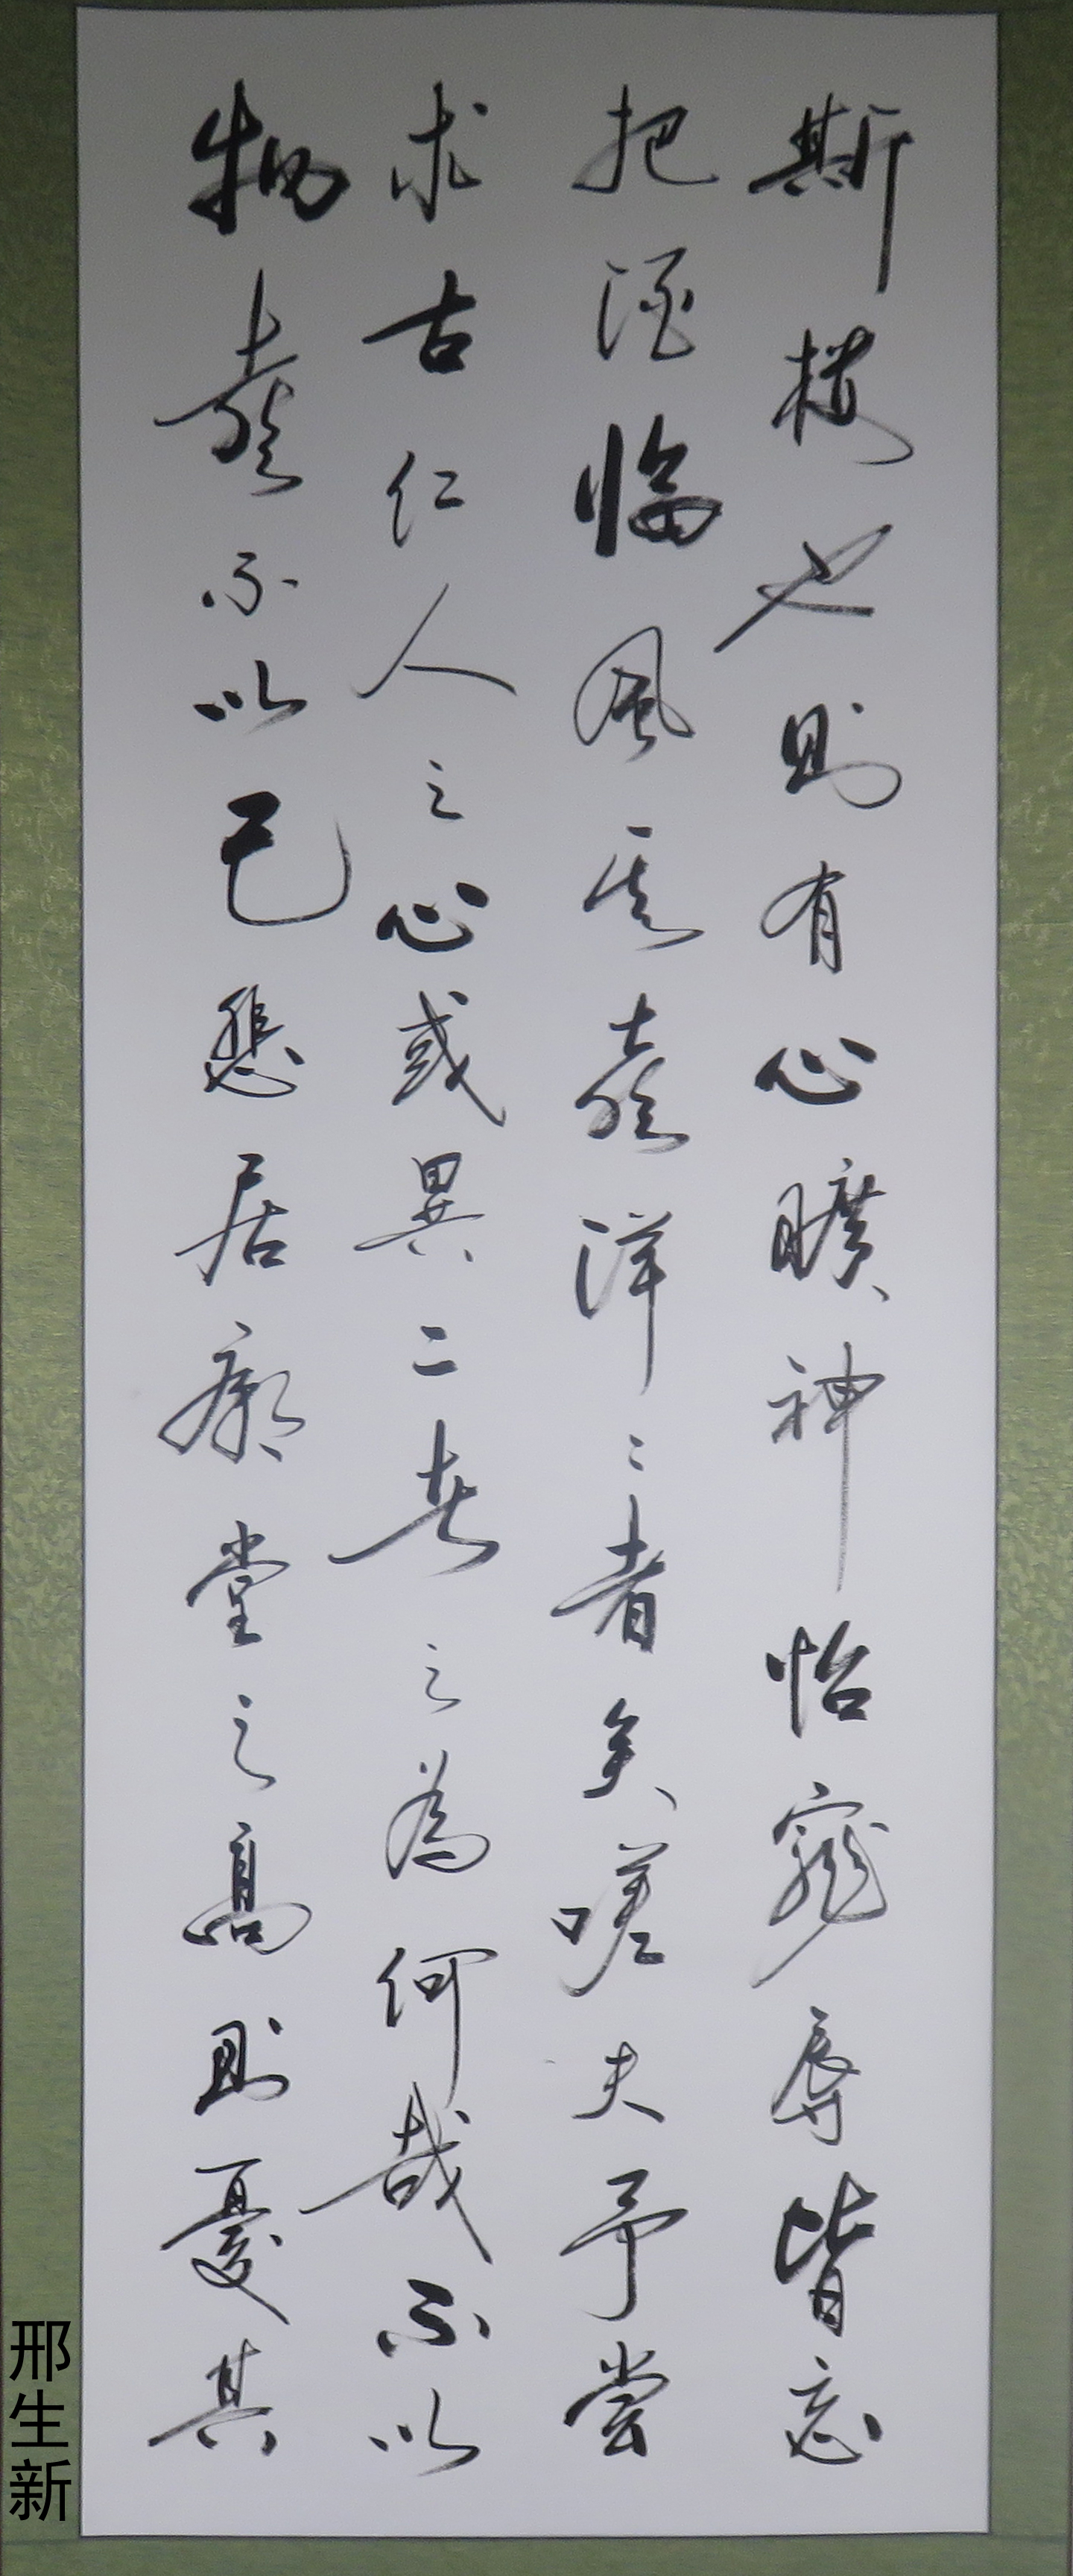 斯樓也則有心曠神怡寵辱皆忘
把酒臨風其喜洋〻者矣嗟夫予嘗
求古仁人之心或異二者之為何哉不以
物喜不以己悲居廟堂之高則憂其
邢生新